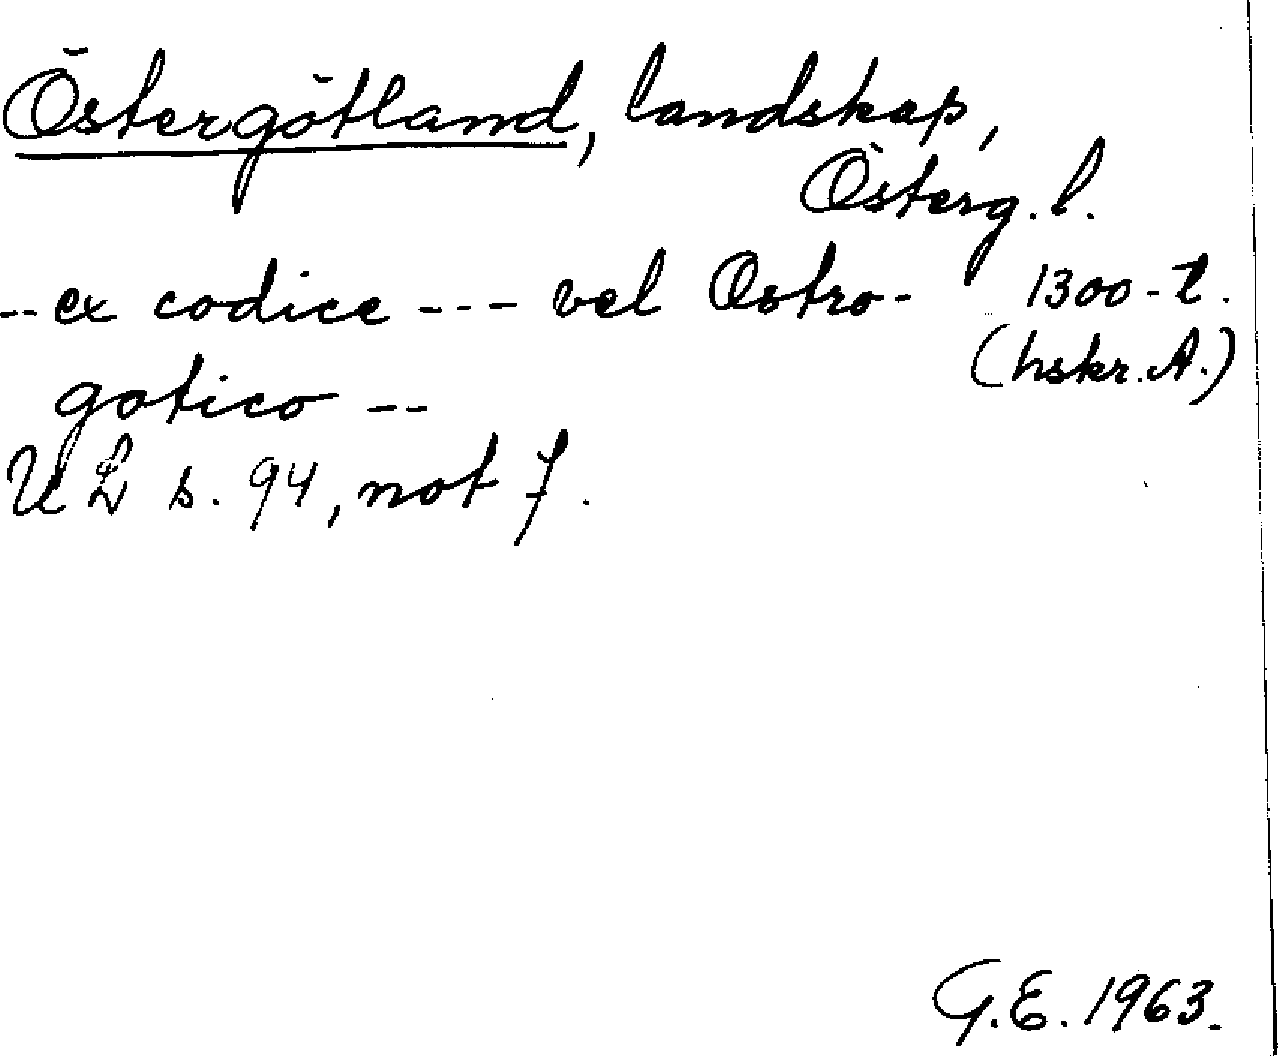 Östergötland, landskap,
Österg. l.
-- ex codice --- vel Ostro- 1300-t.
(hskr. A.)
gotico --
UL s. 94, not 7.
G.E. 1963.